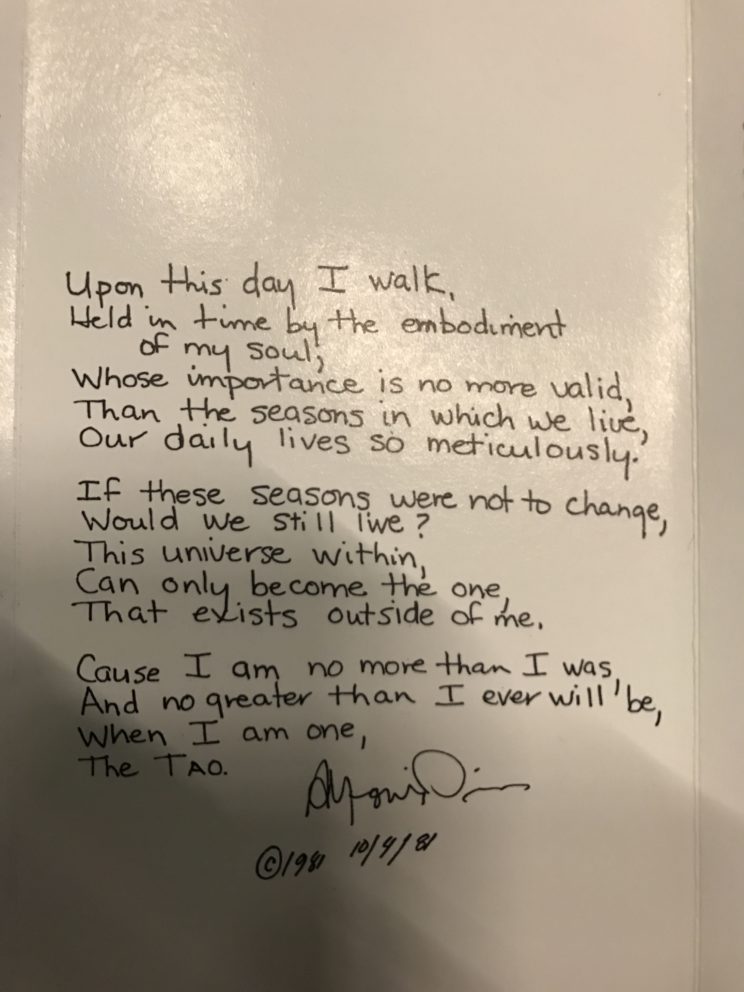 Upon this day I walk,
Held in time by the embodiment
of my soul;
Whose importance is no more valid,
Than the seasons in which we live,
Our daily lives so meticulously.
If these seasons were not to change,
Would we still live?
This universe within,
Can only become the one,
That exists outside of me.
Cause I am no more than I was,
And no greater than I ever will be,
When I am one,
The TAO.
©1981 10/4/81